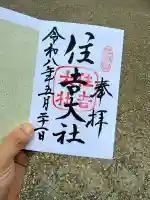 奉拝
住吉大社
令和八年五月二十一日